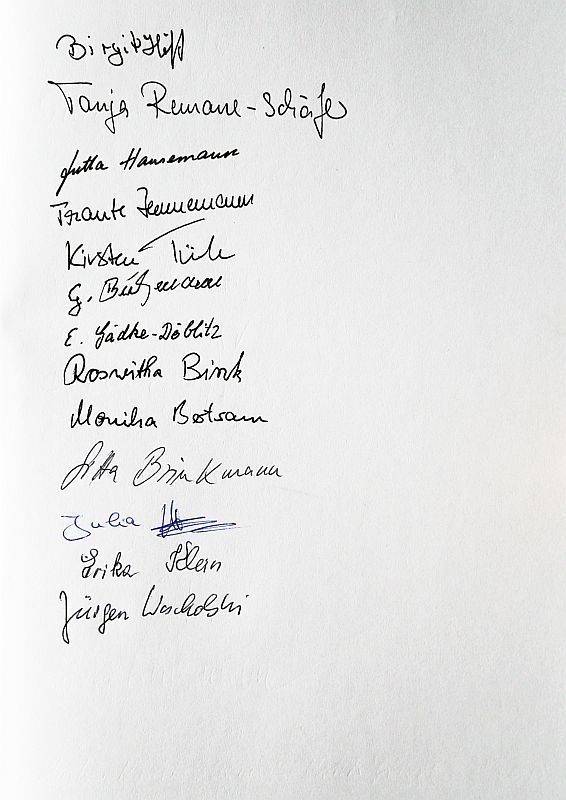 Birgit
Tanja Remane-Schäfer
Jutta Hansemann
Traute
Kirsten
G.
E. Gädke-Döblitz
Roswitha Bink
Monika Bertram
Jutta Brinkmann
Julia
Erika Klein
Jürgen